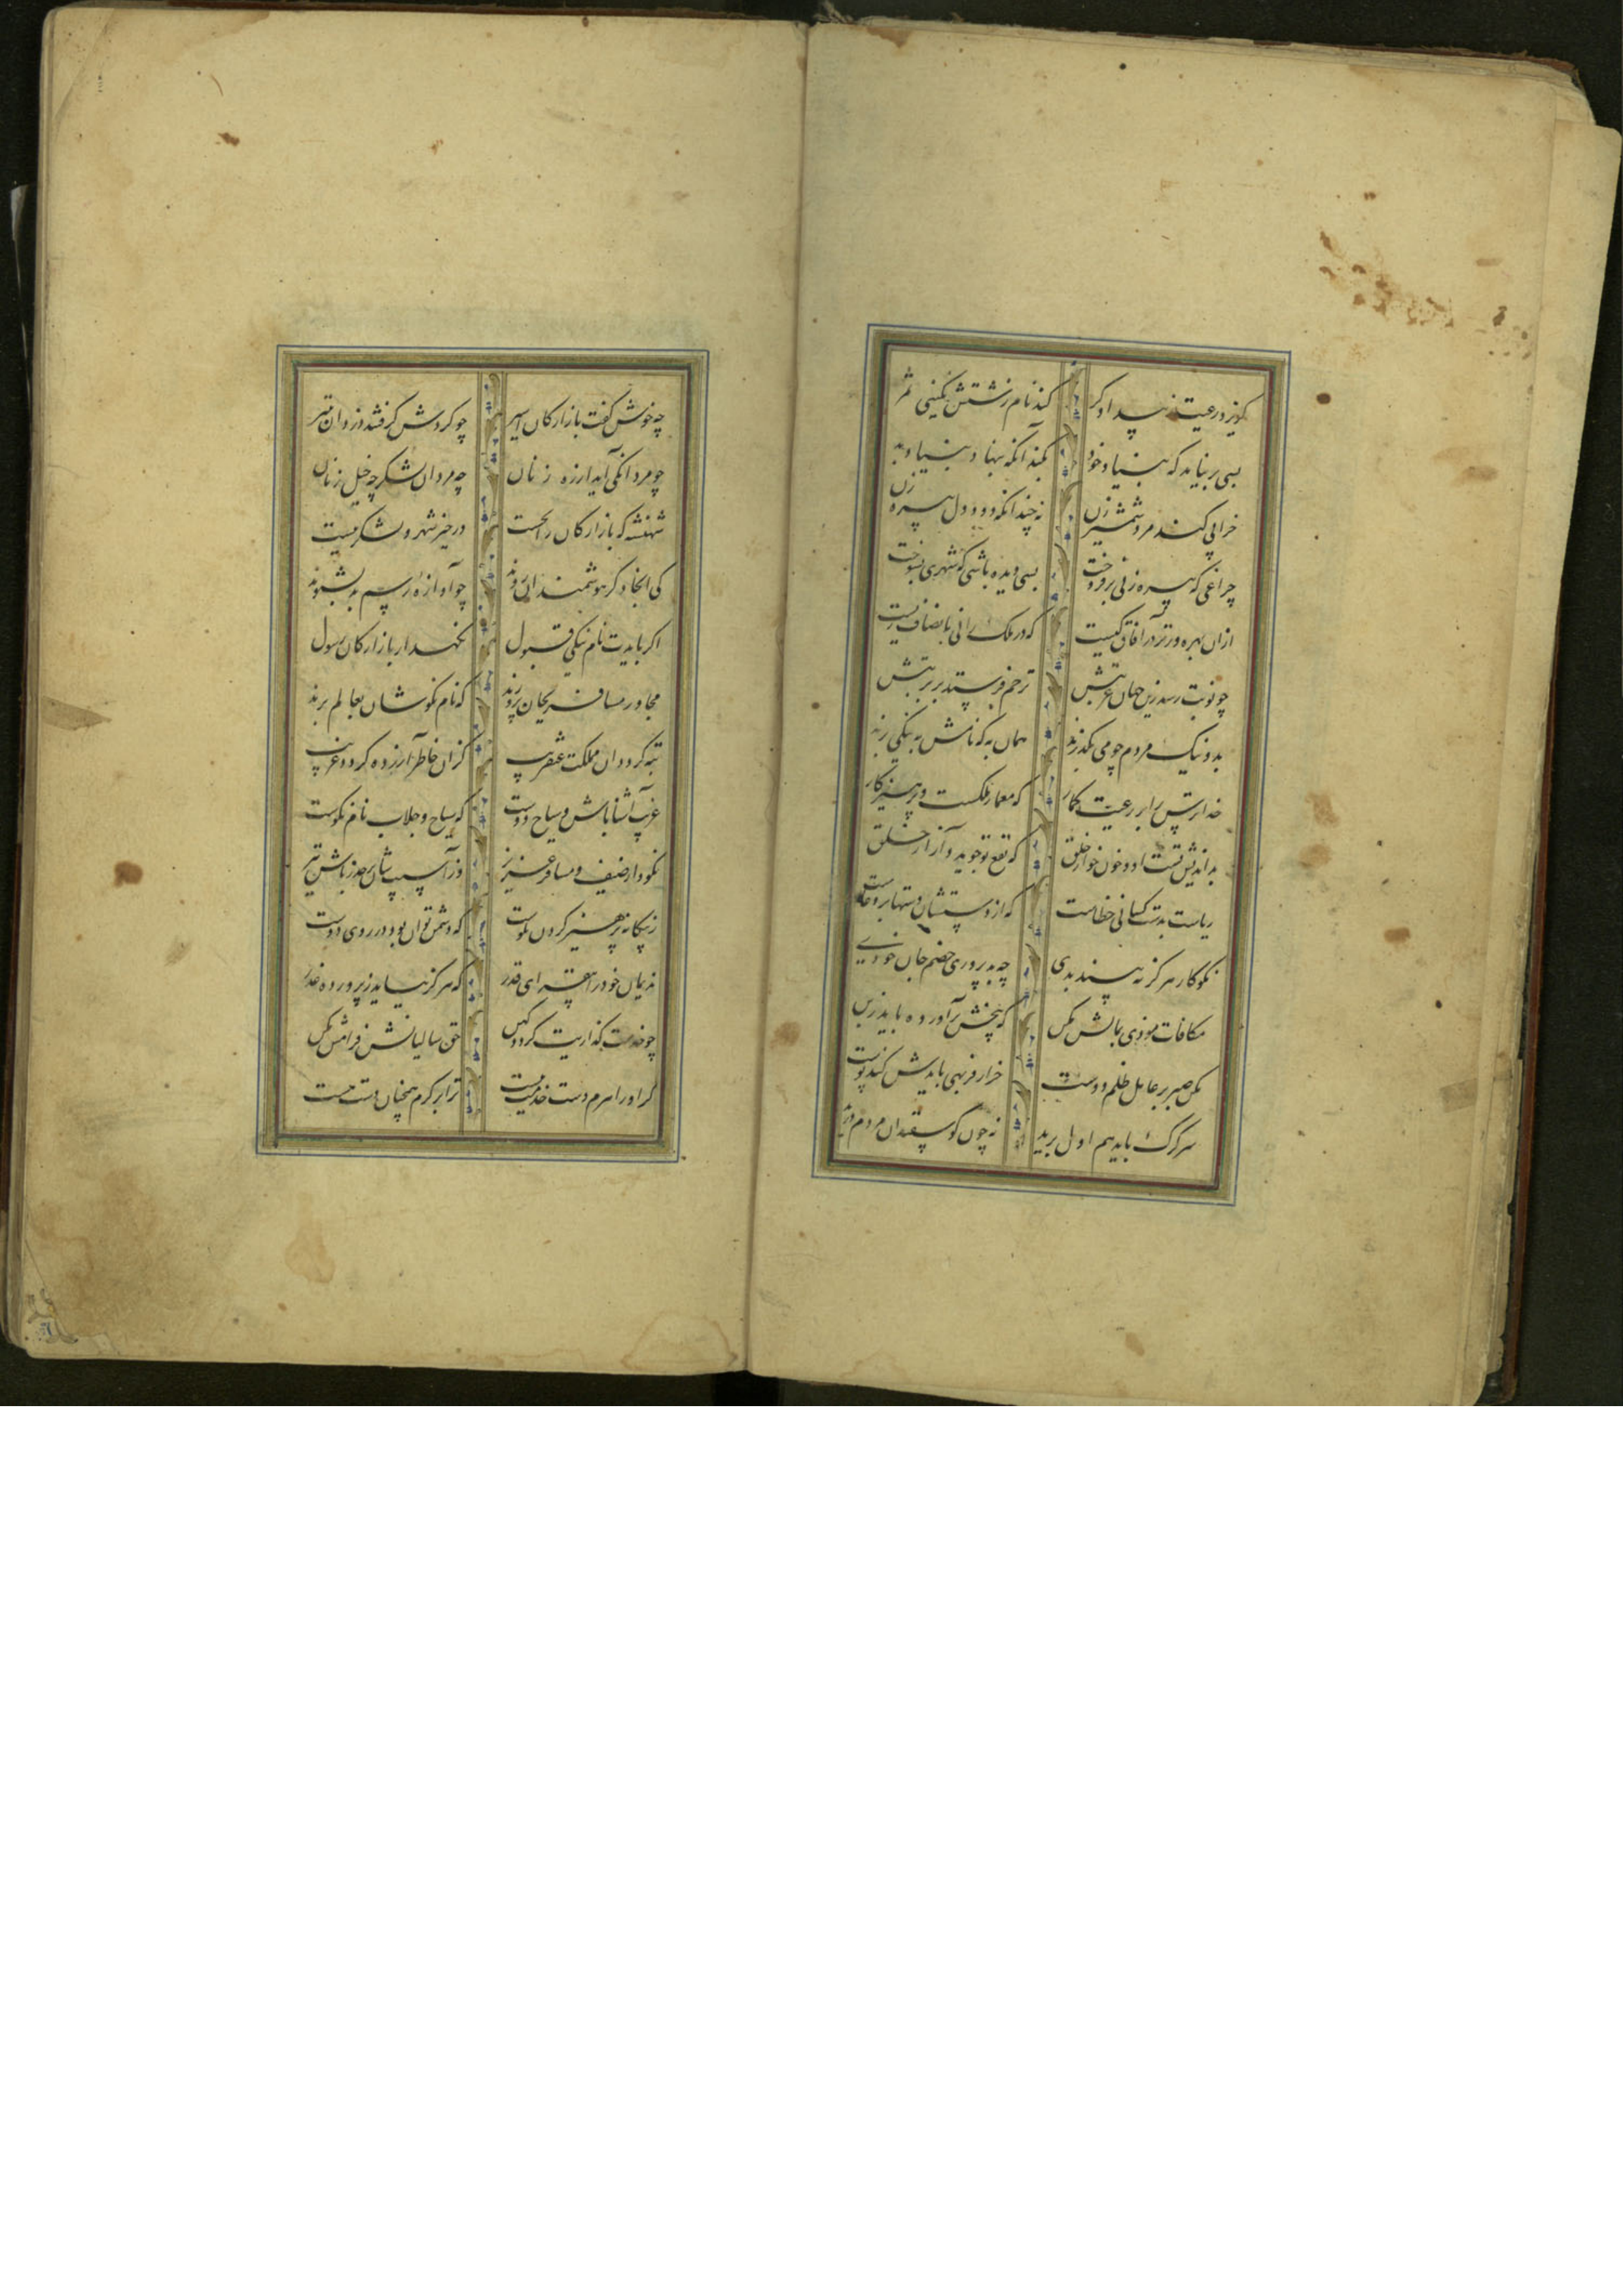 گریزد رعیت ز بیدادگر کند نام زشتش بگیتی سمر
بسی بر نیاید که بنیاد خود بکند آنکه بنهاد بنیاد بد
خرابی کند مرد شمشیر زن نه چندانکه دود دل پیره زن
چراغی که پیره زنی بر فروخت بسی دیده باشی که شهری بسوخت
ازان بهره ورتر در آفاق کیست که در ملک رانی بانصاف زیست
چو نوبت رسد زین جهان غربتش ترحم فرستند بر تربتش
بد و نیک مردم چو می بگذرند همان به که نامش به نیکی برند
خدا ترس را بر رعیت گمار که معمار ملکست پرهیزگار
بد اندیش تست او و خون خوار خلق که نفع تو جوید در آزار خلق
ریاست بدست کسانی خطاست که از دستشان دستها بر خداست
نکوکار هرگز نه بیند بدی چو بد پروری خصم جان خودی
مکافات موذی بمالش مکن که بیخش برآورده باید ز بن
مکن صبر بر عامل ظلم دوست چو از فربهی بایدش کند پوست
سر گرگ باید هم اول برید نه چون گوسفندان مردم درید
چه خوش گفت بازارگان اسیر چو گردش گرفتند دزدان بتیر
چو مردانگی آید از ره زنان چه مردان لشکر چه خیل زنان
شهنشه که بازارگان را بخست در خیر شهر و لشکر ببست
کی آنجا دگر هوشمندان روند چو آوازه رسم بد بشنوند
اگر بایدت نام نیکی قبول نگهدار بازارگان و رسول
مجاور مسافر بجان پرورند که نام نکوشان بعالم برند
تبه گردد آن مملکت عنقریب کزان خاطر آزرده گردد غریب
غریب آشنا باش و سیاح دوست که سیاح و جلاب نام نکوست
نکو دار ضیف و مسافر عزیز وز آسیبشان بر حذر باش نیز
ز بیگانه پرهیز کردن نکوست که دشمن توان بود در روی دوست
ندیمان خود را بیفزای قدر که هرگز نیاید ز پرورده غدر
چو خدمت گذاریت گردد کهن حق سالیانش فرامش مکن
گر او را هرم دست خدمت ببست ترا بر کرم همچنان دست هست